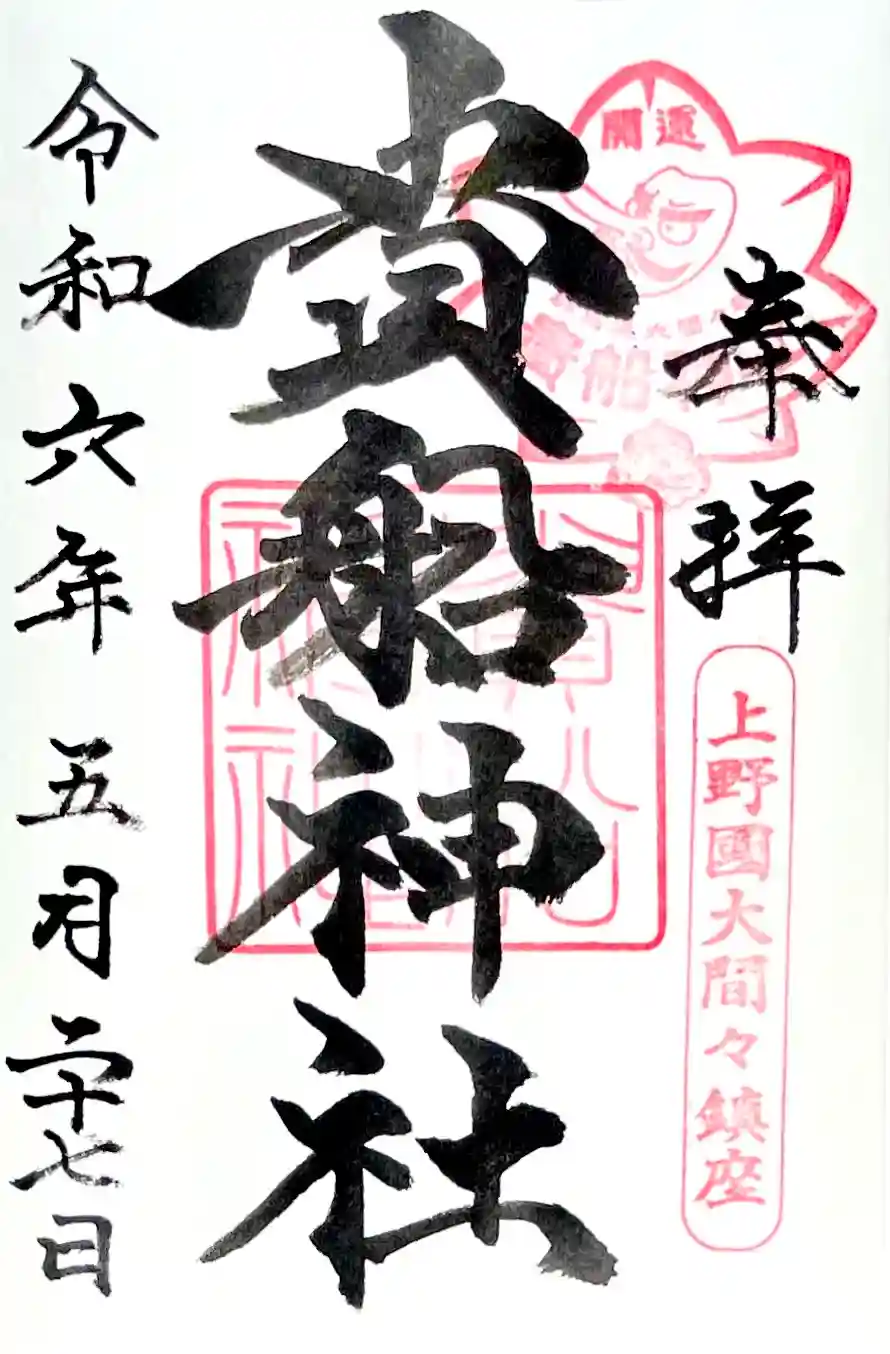 奉拝
開運
貴船
上野國大間々鎮座
貴船神社
令和六年五月二十七日